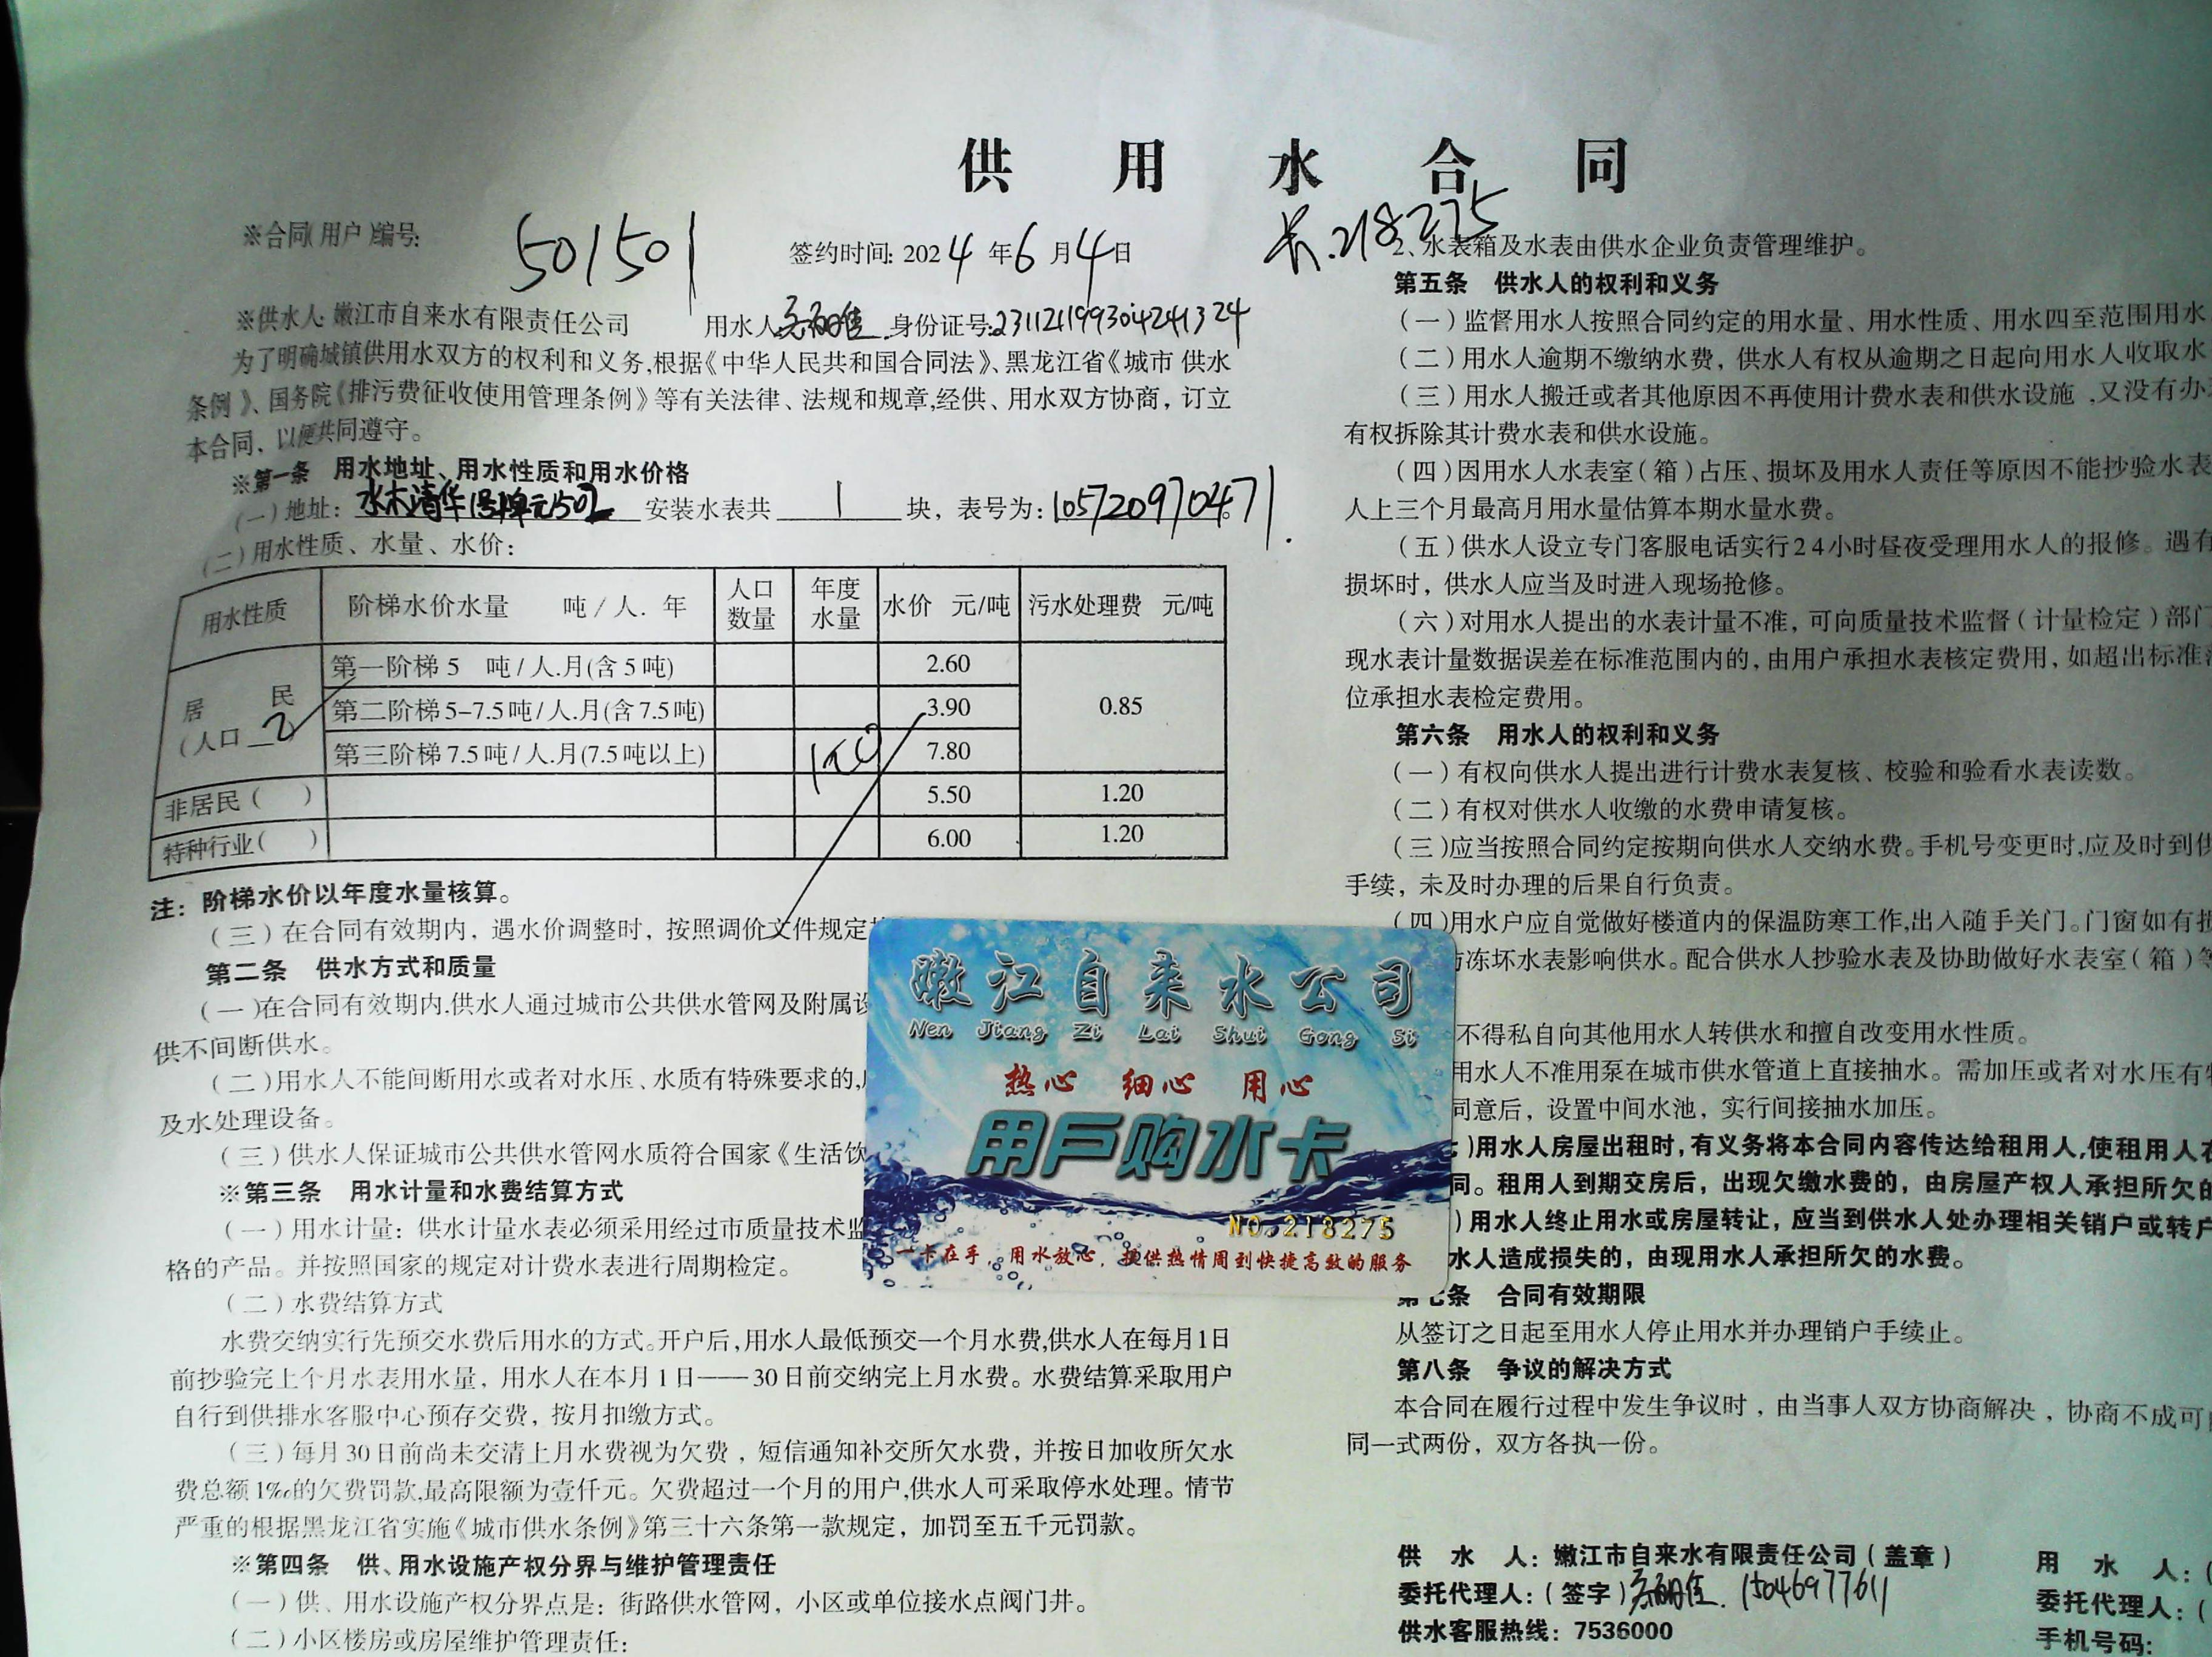 供用水合同
※合同(用户)编号: 501501 签约时间: 2024年6月4日
※供水人: 嫩江市自来水有限责任公司 用水人 身份证号:231121199304241324
为了明确城镇供用水双方的权利和义务,根据《中华人民共和国合同法》、黑龙江省《城市 供水
条例》、国务院《排污费征收使用管理条例》等有关法律、法规和规章,经供、用水双方协商，订立
本合同，以便共同遵守。
※第一条 用水地址、用水性质和用水价格
(一)地址: 水木清华1号1单元502 安装水表共 1 块，表号为: 105720970471.
(二)用水性质、水量、水价:
用水性质 阶梯水价水量 吨/人.年 人口数量 年度水量 水价 元/吨 污水处理费 元/吨
居民(人口 2 第一阶梯 5 吨/人.月(含5吨) 2.60 0.85
第二阶梯 5-7.5吨/人.月(含7.5吨) 3.90
第三阶梯 7.5吨/人.月(7.5吨以上) 7.80
非居民( ) 5.50 1.20
特种行业( ) 6.00 1.20
注：阶梯水价以年度水量核算。
(三)在合同有效期内，遇水价调整时，按照调价文件规定
第二条 供水方式和质量
(一)在合同有效期内,供水人通过城市公共供水管网及附属设
供不间断供水。
(二)用水人不能间断用水或者对水压、水质有特殊要求的,
及水处理设备。
(三)供水人保证城市公共供水管网水质符合国家《生活饮
※第三条 用水计量和水费结算方式
(一)用水计量：供水计量水表必须采用经过市质量技术监
格的产品。并按照国家的规定对计费水表进行周期检定。
(二)水费结算方式
水费交纳实行先预交水费后用水的方式。开户后,用水人最低预交一个月水费,供水人在每月1日
前抄验完上个月水表用水量，用水人在本月1日——30日前交纳完上月水费。水费结算采取用户
自行到供排水客服中心预存交费，按月扣缴方式。
(三)每月30日前尚未交清上月水费视为欠费，短信通知补交所欠水费，并按日加收所欠水
费总额1‰的欠费罚款,最高限额为壹仟元。欠费超过一个月的用户,供水人可采取停水处理。情节
严重的根据黑龙江省实施《城市供水条例》第三十六条第一款规定，加罚至五千元罚款。
※第四条 供、用水设施产权分界与维护管理责任
(一)供、用水设施产权分界点是：街路供水管网，小区或单位接水点阀门井。
(二)小区楼房或房屋维护管理责任:
卡.218275
2、水表箱及水表由供水企业负责管理维护。
第五条 供水人的权利和义务
(一)监督用水人按照合同约定的用水量、用水性质、用水四至范围用水
(二)用水人逾期不缴纳水费，供水人有权从逾期之日起向用水人收取水
(三)用水人搬迁或者其他原因不再使用计费水表和供水设施,又没有办
有权拆除其计费水表和供水设施。
(四)因用水人水表室(箱)占压、损坏及用水人责任等原因不能抄验水表
人上三个月最高月用水量估算本期水量水费。
(五)供水人设立专门客服电话实行24小时昼夜受理用水人的报修。遇有
损坏时，供水人应当及时进入现场抢修。
(六)对用水人提出的水表计量不准，可向质量技术监督(计量检定)部门
现水表计量数据误差在标准范围内的，由用户承担水表核定费用，如超出标准
位承担水表检定费用。
第六条 用水人的权利和义务
(一)有权向供水人提出进行计费水表复核、校验和验看水表读数。
(二)有权对供水人收缴的水费申请复核。
(三)应当按照合同约定按期向供水人交纳水费。手机号变更时,应及时到供
手续，未及时办理的后果自行负责。
(四)用水户应自觉做好楼道内的保温防寒工作,出入随手关门。门窗如有损
冻坏水表影响供水。配合供水人抄验水表及协助做好水表室(箱)等
不得私自向其他用水人转供水和擅自改变用水性质。
用水人不准用泵在城市供水管道上直接抽水。需加压或者对水压有特
同意后，设置中间水池，实行间接抽水加压。
)用水人房屋出租时，有义务将本合同内容传达给租用人,使租用人在
同。租用人到期交房后，出现欠缴水费的，由房屋产权人承担所欠的
)用水人终止用水或房屋转让，应当到供水人处办理相关销户或转户
水人造成损失的，由现用水人承担所欠的水费。
第七条 合同有效期限
从签订之日起至用水人停止用水并办理销户手续止。
第八条 争议的解决方式
本合同在履行过程中发生争议时，由当事人双方协商解决，协商不成可
同一式两份，双方各执一份。
供 水 人：嫩江市自来水有限责任公司(盖章)
委托代理人：(签字) 15046977611
供水客服热线：7536000
用 水 人：(
委托代理人：(
手机号码:
嫩江自来水公司
Nen Jiang Zi Lai Shui Gong Si
热心 细心 用心
用户购水卡
NO.218275
一卡在手，用水放心，提供热情周到快捷高效的服务